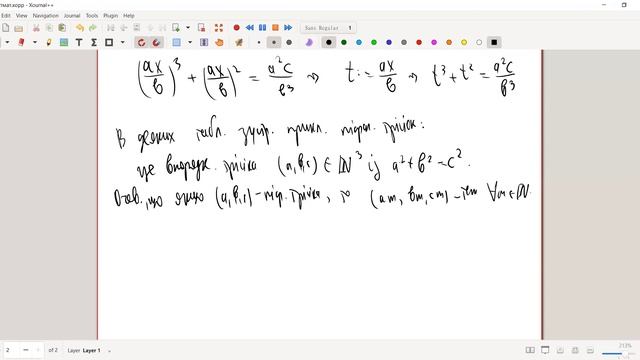 mam.xopp - Xournal++
Edit View Navigation Journal Tools Plugin Help
Sans Regular 1
(ax/b)³ + (ax/b)² = a²c/b³ ⇒ t := ax/b ⇒ t³ + t² = a²c/b³
В деяких табл. зустр. прикл. піфаг. трійок:
це впорядк. трійка (a, b, c) ∈ ℕ³ із a² + b² = c².
Очев., що якщо (a, b, c) – піф. трійка, то (am, bm, cm) – теж ∀m ∈ ℕ.
2 of 2 Layer Layer 1
213%